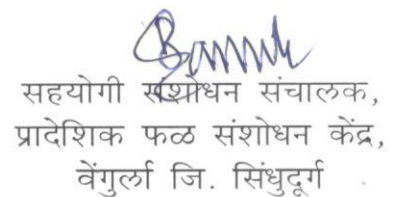 सहयोगी संशोधन संचालक,
प्रादेशिक फळ संशोधन केंद्र,
वेंगुर्ला जि. सिंधुदूर्ग